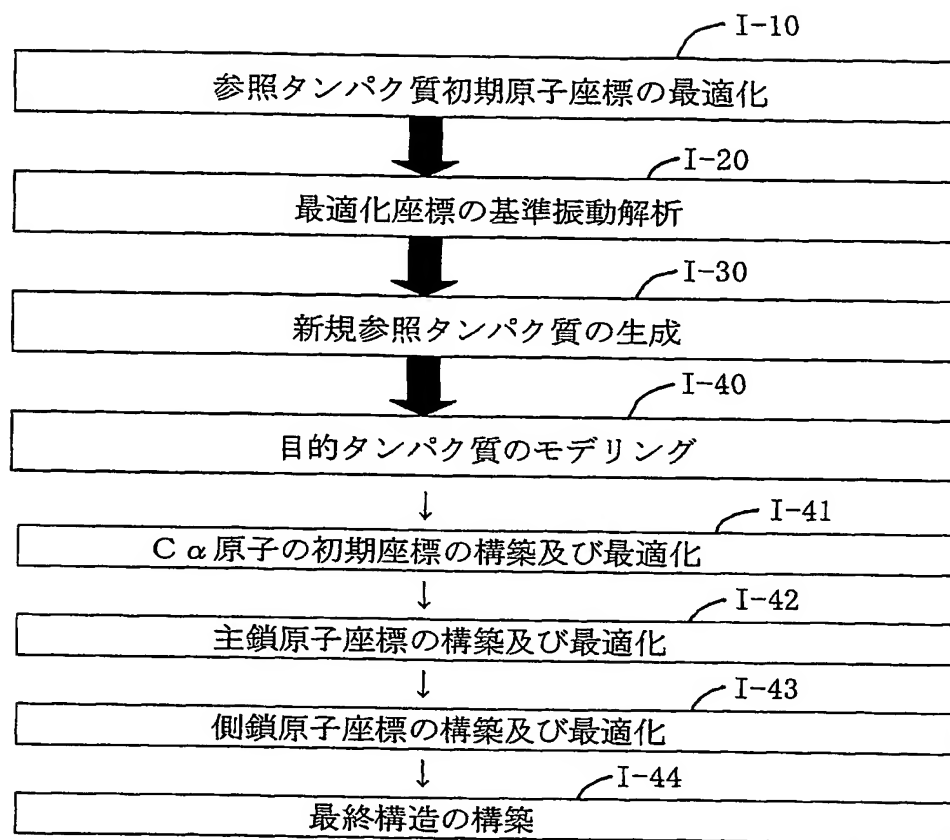 I-10
参照タンパク質初期原子座標の最適化
I-20
最適化座標の基準振動解析
I-30
新規参照タンパク質の生成
I-40
目的タンパク質のモデリング
↓
I-41
Cα原子の初期座標の構築及び最適化
↓
I-42
主鎖原子座標の構築及び最適化
↓
I-43
側鎖原子座標の構築及び最適化
↓
I-44
最終構造の構築